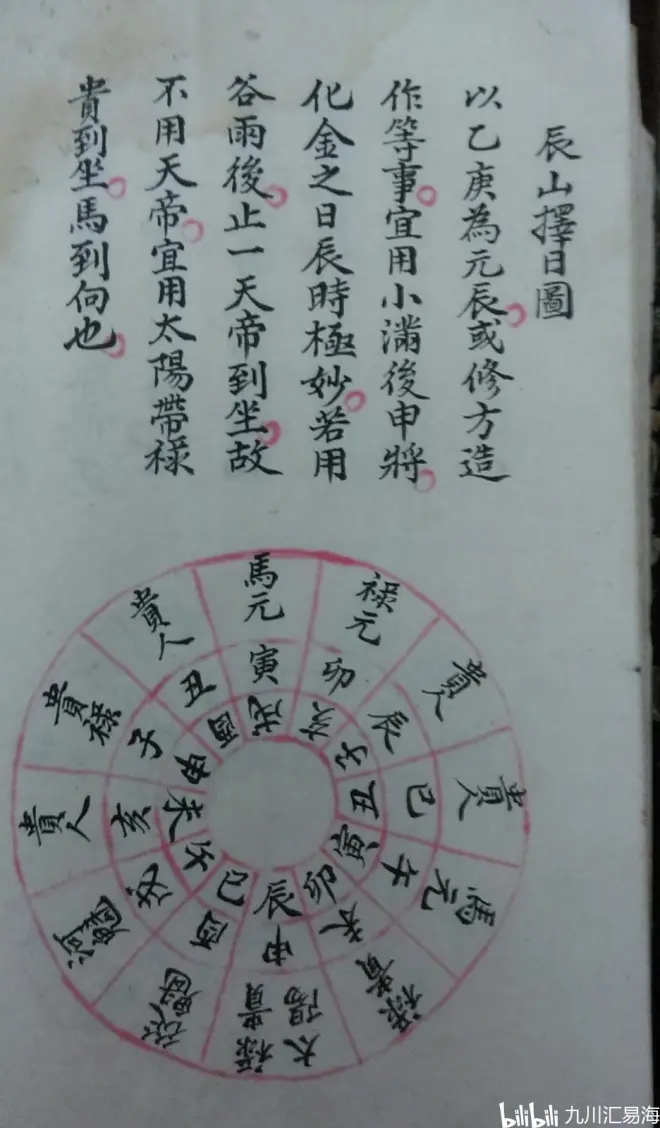 辰山擇日圖
以乙庚為元辰。或修方造
作等事。宜用小滿後申將。
化金之日辰時極妙。若用
谷雨後。止一天帝到坐。故
不用天帝。宜用太陽帶祿
貴到坐。馬到向也。
馬元
祿元
貴人
貴人
馬元
祿貴
太陽祿貴
河魁
貴人
貴祿
貴人
寅
卯
辰
巳
午
未
申
酉
戌
亥
子
丑
戌
亥
子
丑
寅
卯
辰
巳
午
未
申
酉
bilibili 九川汇易海